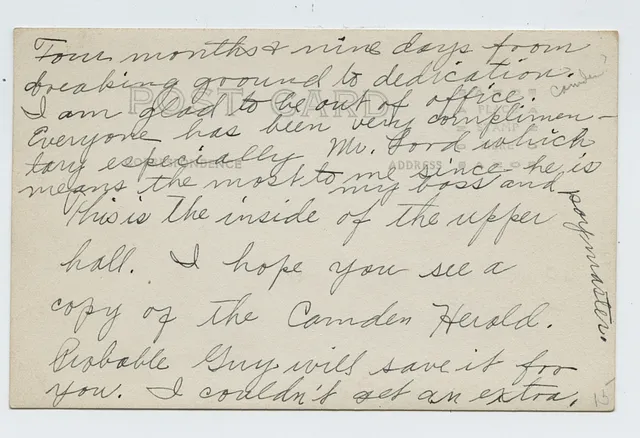 Four months & nine days from
breaking ground to dedication.
I am glad to be out of office.
Everyone has been very complimen-
tary especially Mr. Lord which
means the most to me since he is
my boss and
paymaster.
This is the inside of the upper
hall. I hope you see a
copy of the Camden Herold.
Probable Guy will save it for
you. I couldn't get an extra.
Camden
POST CARD
CORRESPONDENCE
ADDRESS
STAMP
15